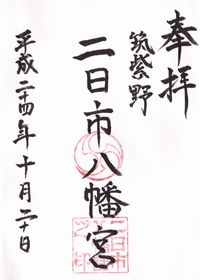 奉拝
筑紫野
二日市八幡宮
平成二十四年十月二十日